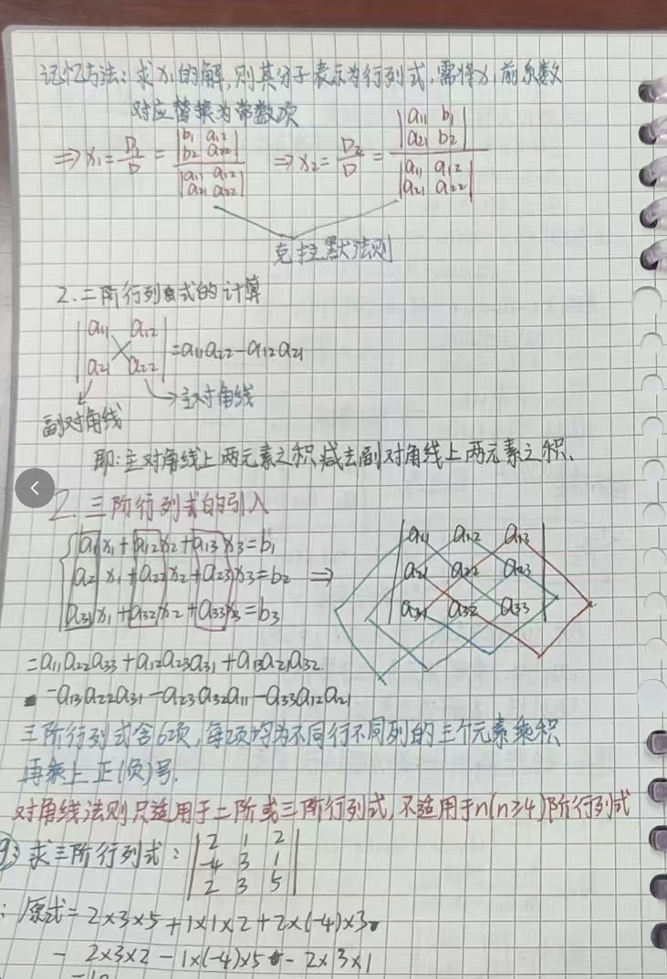 记忆方法：求x₁的解，则其分子表示为行列式，需将x₁前系数
对应替换为常数项
⇒x₁=D₁/D=|b₁ a₁₂ b₂ a₂₂|/|a₁₁ a₁₂ a₂₁ a₂₂| ⇒x₂=D₂/D=|a₁₁ b₁ a₂₁ b₂|/|a₁₁ a₁₂ a₂₁ a₂₂|
克拉默法则
2.二阶行列式的计算
|a₁₁ a₁₂
a₂₁ a₂₂|=a₁₁a₂₂-a₁₂a₂₁
主对角线
副对角线
即：主对角线上两元素之积减去副对角线上两元素之积.
2.三阶行列式的引入
a₁₁x₁+a₁₂x₂+a₁₃x₃=b₁ |a₁₁ a₁₂ a₁₃|
a₂₁x₁+a₂₂x₂+a₂₃x₃=b₂ ⇒ |a₂₁ a₂₂ a₂₃|
a₃₁x₁+a₃₂x₂+a₃₃x₃=b₃ |a₃₁ a₃₂ a₃₃|
=a₁₁a₂₂a₃₃+a₁₂a₂₃a₃₁+a₁₃a₂₁a₃₂
-a₁₃a₂₂a₃₁-a₂₃a₃₂a₁₁-a₃₃a₁₂a₂₁
三阶行列式含6项，每项均为不同行不同列的三个元素乘积
再乘上正(负)号.
对角线法则只适用于二阶或三阶行列式，不适用于n(n≥4)阶行列式
求三阶行列式：|2 1 2|
|-4 3 1|
|2 3 5|
：原式=2×3×5+1×1×2+2×(-4)×3
-2×3×2-1×(-4)×5-2×3×1